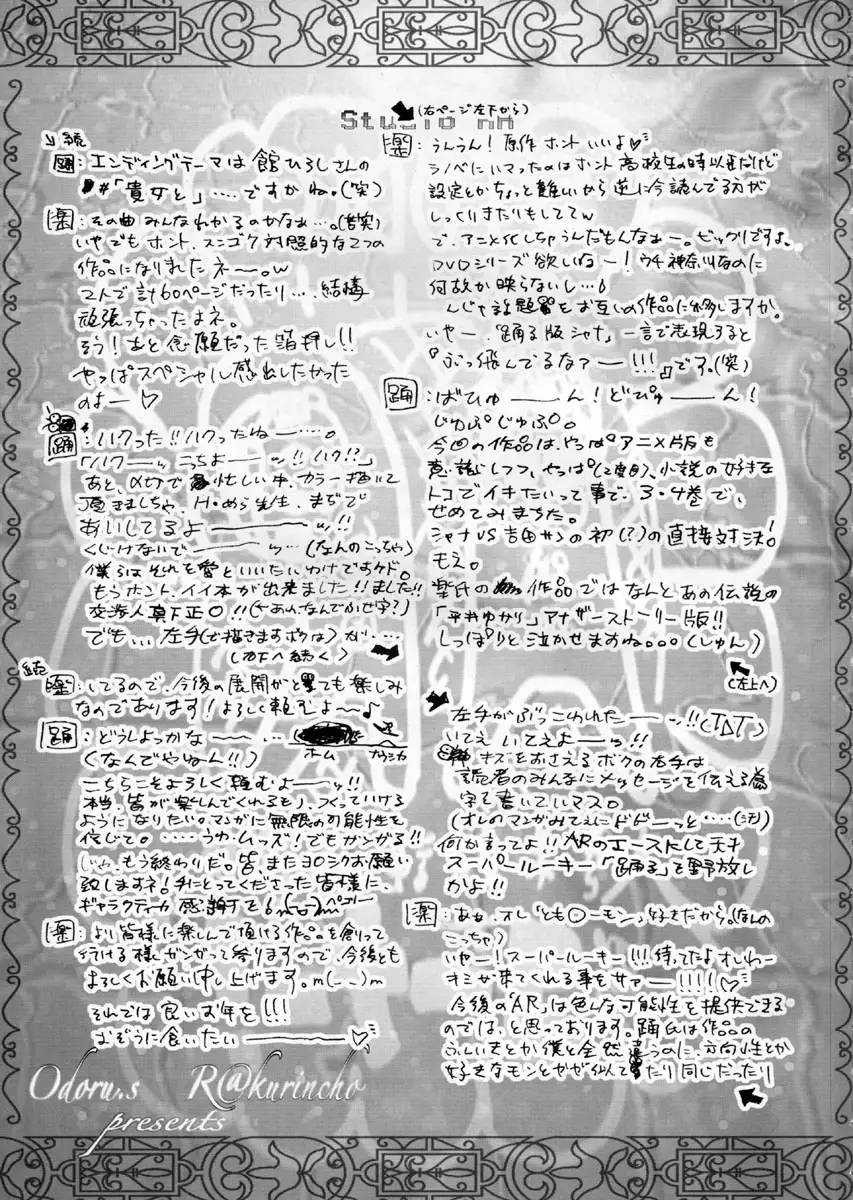 Studio
(右ページ左下から)
楽:うんうん!原作ホントいいよ♡
ラノベにハマったのはホント高校生の時以来だけど
設定とかちょっと難しいから逆に今読んでる方が
しっくりきたりもしててw
で、アニメ化しちゃうんだもんなぁー。ビックリですよ。
DVDシリーズ欲しいねー!ウチ神奈川なのに
何故か映らないし…!
んじゃ話題をお互いの作品に移しますか。
いやー、「踊る版シャナ」、一言で表現すると
『ぶっ飛んでるなァー!!!』です。(笑)
踊:ばひゅーーん!どぴゅーーん!
じゅぷじゅぷ。
今回の作品は、やっぱアニメ版も
意識しつつ、やっぱ(2度目)、小説の好きな
トコでイキたいって事で、3・4巻で、
せめてみまちた。
シャナVS吉田サンの初(?)の直接対決!
もえ。
楽氏の作品ではなんとあの伝説の
「平井ゆかり」アナザーストーリー版!!
しっぽりと泣かせますね。。。(しゅん)
(左上へ)
続
踊:エンディングテーマは館ひろしさんの
#「貴女と」……ですかね。(笑)
楽:その曲みんなわかるのかなぁ…。(苦笑)
いやでもホント、スンゴク対照的な2つの
作品になりましたネー。w
2人で計60ページだったり…、結構
頑張っちゃったよネ。
そう!あと念願だった箔押し!!
やっぱスペシャル感出したかった
のよー♡
踊:ハクった!!ハクったねー…。
「ハクーッ こっちよーッ!! ハク!?」
あと、〆切で忙しい中、カラー描いて
頂きましちゃ、H・めら先生、まぢで
あいしてるよーーーッ!!
くじけないでーーーッ…(なんのこっちゃ)
僕らはそれを愛といいたいわけですケド。
もうホント、イイ本が出来ました!!ました!!
交渉人真下正○!!(←あれなんでかせ字?)
でも…、左手(で描きますボクは)が…
(右下へ続く)
左手がぶっこわれたーーッ!!(TΔT)
いてえ いてえよーッ!!
キズをおさえるボクの右手は
読者のみんなにメッセージを伝える為
字を書いていマス。
(オレのマンガみてぇにドドーーっと……(汗))
何か言ってよ!!ARのエースとして天才
スーパールーキー「踊る」を野放し
かよ!!
楽:あぁ、オレ「とも○ーモン」好きだから。(なんの
こっちゃ)
いやー!スーパールーキー!!!待ってたよオレわー
キミが来てくれる事をサァー!!!!(♡
今後の「AR」は色んな可能性を提供できる
のでは、と思っております。踊氏は作品の
ふいんきとか僕と全然違うのに、方向性とか
好きなモンとかが似てたり同じだったり
続
楽:してるので、今後の展開がとても楽しみ
なのであります!よろしく頼むよ〜♪
踊:どうしよっかなー…。
ホーム
(なんでやねん!!)
こちらこそよろしく頼むよーッ!!
本当、皆が楽しんでくれるもの、つくっていける
ようになりたい。マンガに無限の可能性を
信じて。……うわ、ムッズ!でもガンガる!!
じゃ、もう終わりだ。皆、またヨロシクお願い
致しますネ!手にとってくださった皆様に、
ギャラクティカ感謝を m(_ _)m ペコリー
楽:より皆様に楽しんで頂ける作品を創って
行ける様ガンガって参りますので、今後とも
よろしくお願い申し上げます。m(-_-)m
それでは良いお年を!!!
おぞうに食いたいーーー♡
Odoru.s R@kurincho
presents